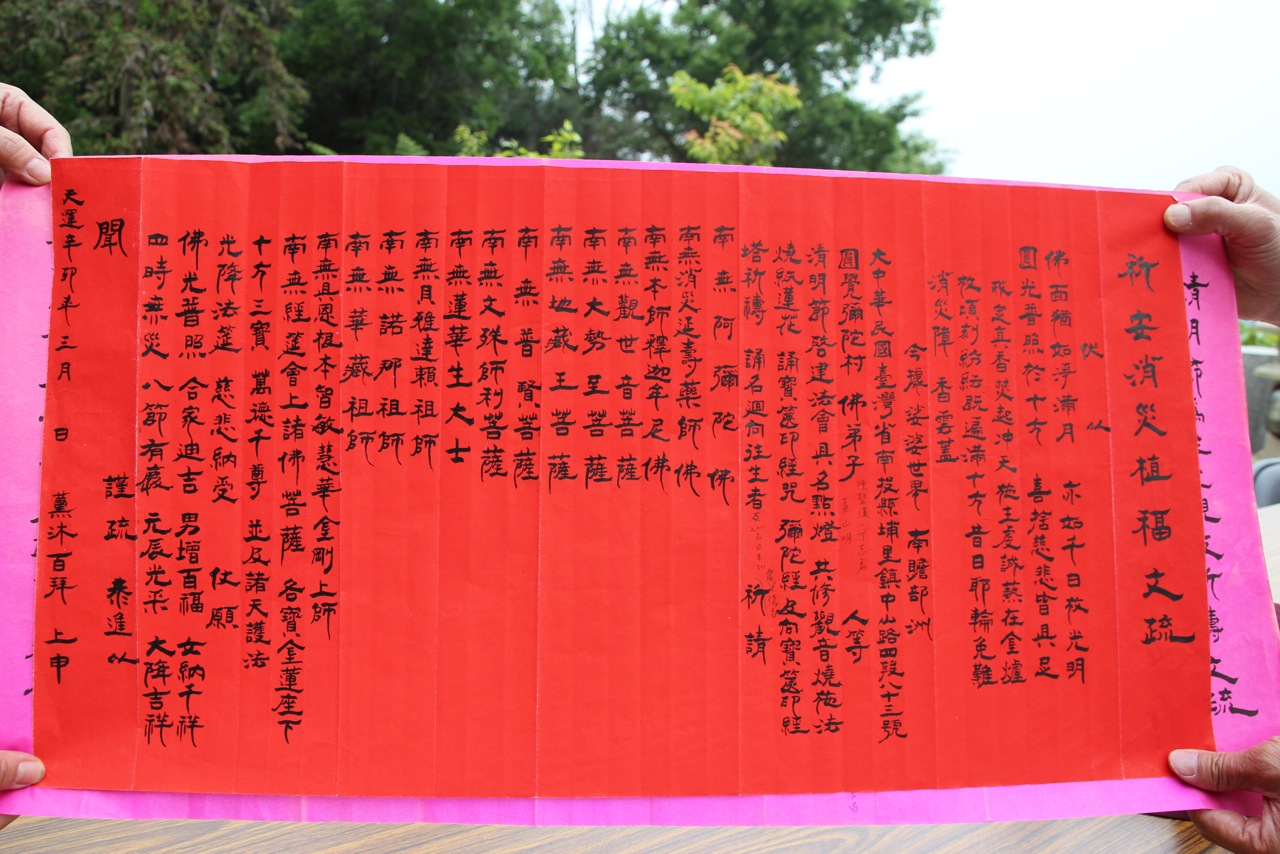 祈安消災植福文疏
伏以
佛面猶如淨滿月 亦如千日放光明
圓光普照於十方 喜捨慈悲皆具足
戒定真香焚起冲天 施主虔誠爇在金爐
放頃刻紛紜既遍滿十方 昔日耶輸免難
消災障 香雲蓋
今據 娑婆世界 南贍部洲
大中華民國臺灣省南投縣埔里鎮中山路四段八十三號
圓覺彌陀村 佛弟子 人等
清明節啓建法會具名點燈 共修觀音燒施法
燒紋蓮花 誦寶篋印經咒 彌陀經及向寶篋印經
塔祈禱 誦名迴向往生者 祈請
南無阿彌陀佛
南無消災延壽藥師佛
南無本師釋迦牟尼佛
南無觀世音菩薩
南無大勢至菩薩
南無地藏王菩薩
南無普賢菩薩
南無文殊師利菩薩
南無蓮華生大士
南無貝雅達賴祖師
南無諾那祖師
南無華藏祖師
南無具恩根本智敏慧華金剛上師
南無經筵會上諸佛菩薩 各寶金蓮座下
十方三寶 萬德千尊 並及諸天護法
光降法筵 慈悲納受 伏願
佛光普照 合家迪吉 男增百福 女納千祥
四時無災 八節有慶 元辰光采 大降吉祥
謹疏 恭進以
聞
天運辛卯年三月 日 薰沐百拜 上申